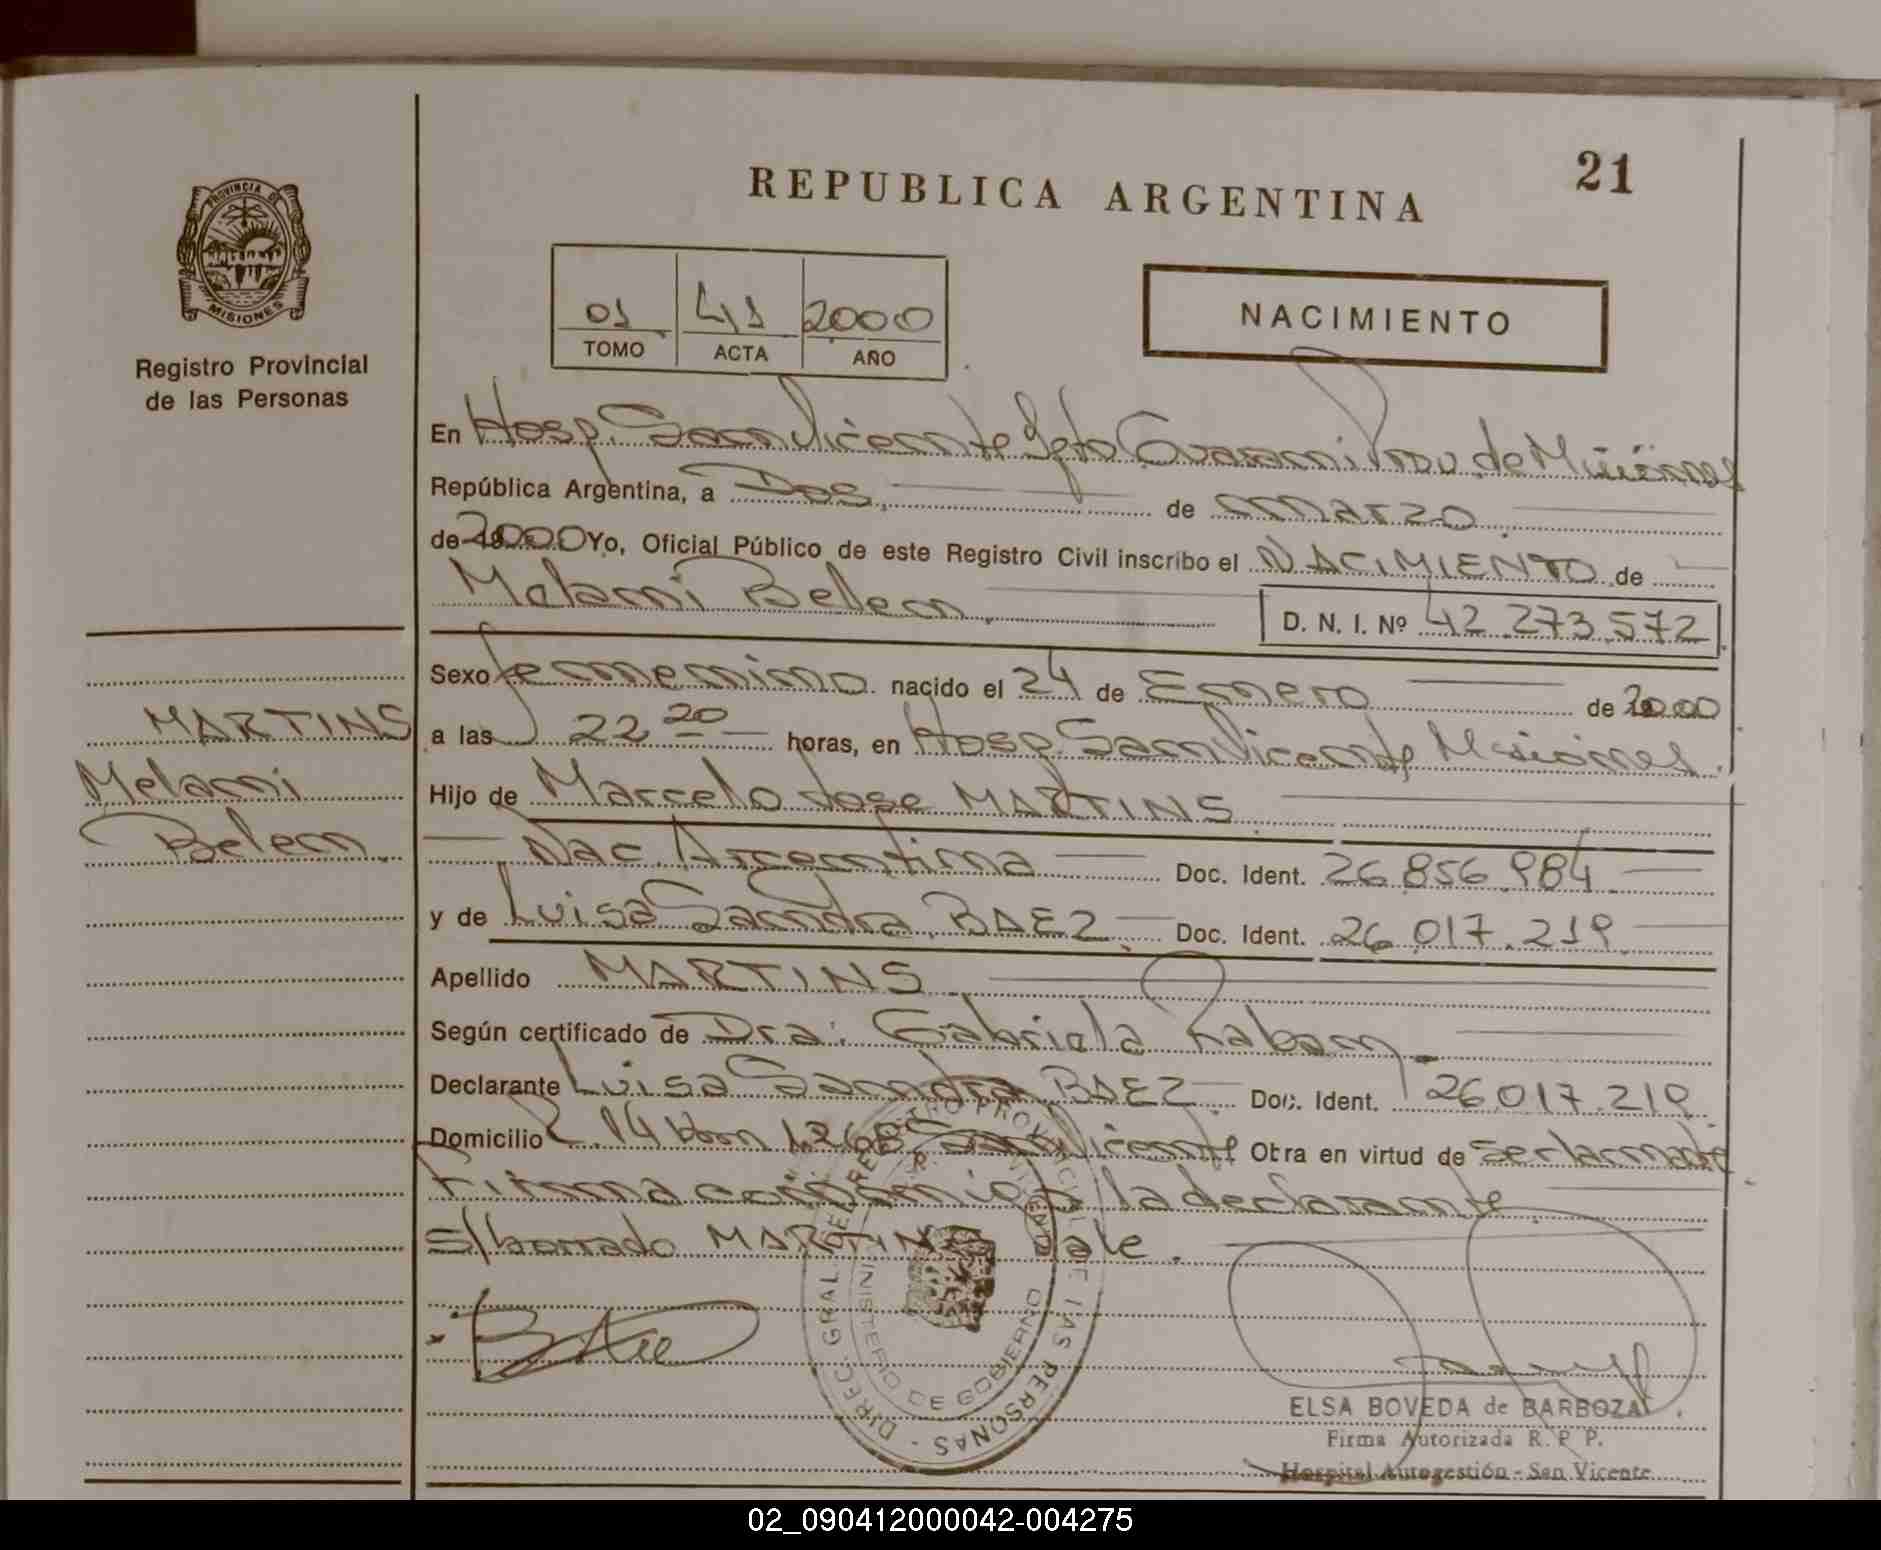 REPUBLICA ARGENTINA
21
PROVINCIA DE
MISIONES
Registro Provincial
de las Personas
01 41 2000
TOMO ACTA AÑO
NACIMIENTO
En Hosp. San Vicente Dpto Guarani Prov. de Misiones
República Argentina, a Dos de marzo
de 2000 Yo, Oficial Público de este Registro Civil inscribo el NACIMIENTO de
Melani Belen D. N. I. Nº 42 273 572
Sexo femenino nacido el 24 de Enero de 2000
a las 22 20 horas, en Hosp. San Vicente Misiones
MARTINS
Melani
Belen
Hijo de Marcelo Jose MARTINS
Nac. Argentina Doc. Ident. 26 856 984
y de Luisa Sandra BAEZ Doc. Ident. 26 017.219
Apellido MARTINS
Según certificado de Dra. Gabriela
Declarante Luisa Sandra BAEZ Doc. Ident. 26 017.219
Domicilio R. 14 km 1268 San Vicente Otra en virtud de ser la madre
Firma conmigo la declarante
E/borrado MARTINS Vale.
DIREC. GRAL. DEL REGISTRO PROVINCIAL DE LAS PERSONAS
MINISTERIO DE GOBIERNO
ELSA BOVEDA de BARBOZA
Firma Autorizada R. P. P.
Hospital Autogestión - San Vicente
02_090412000042-004275